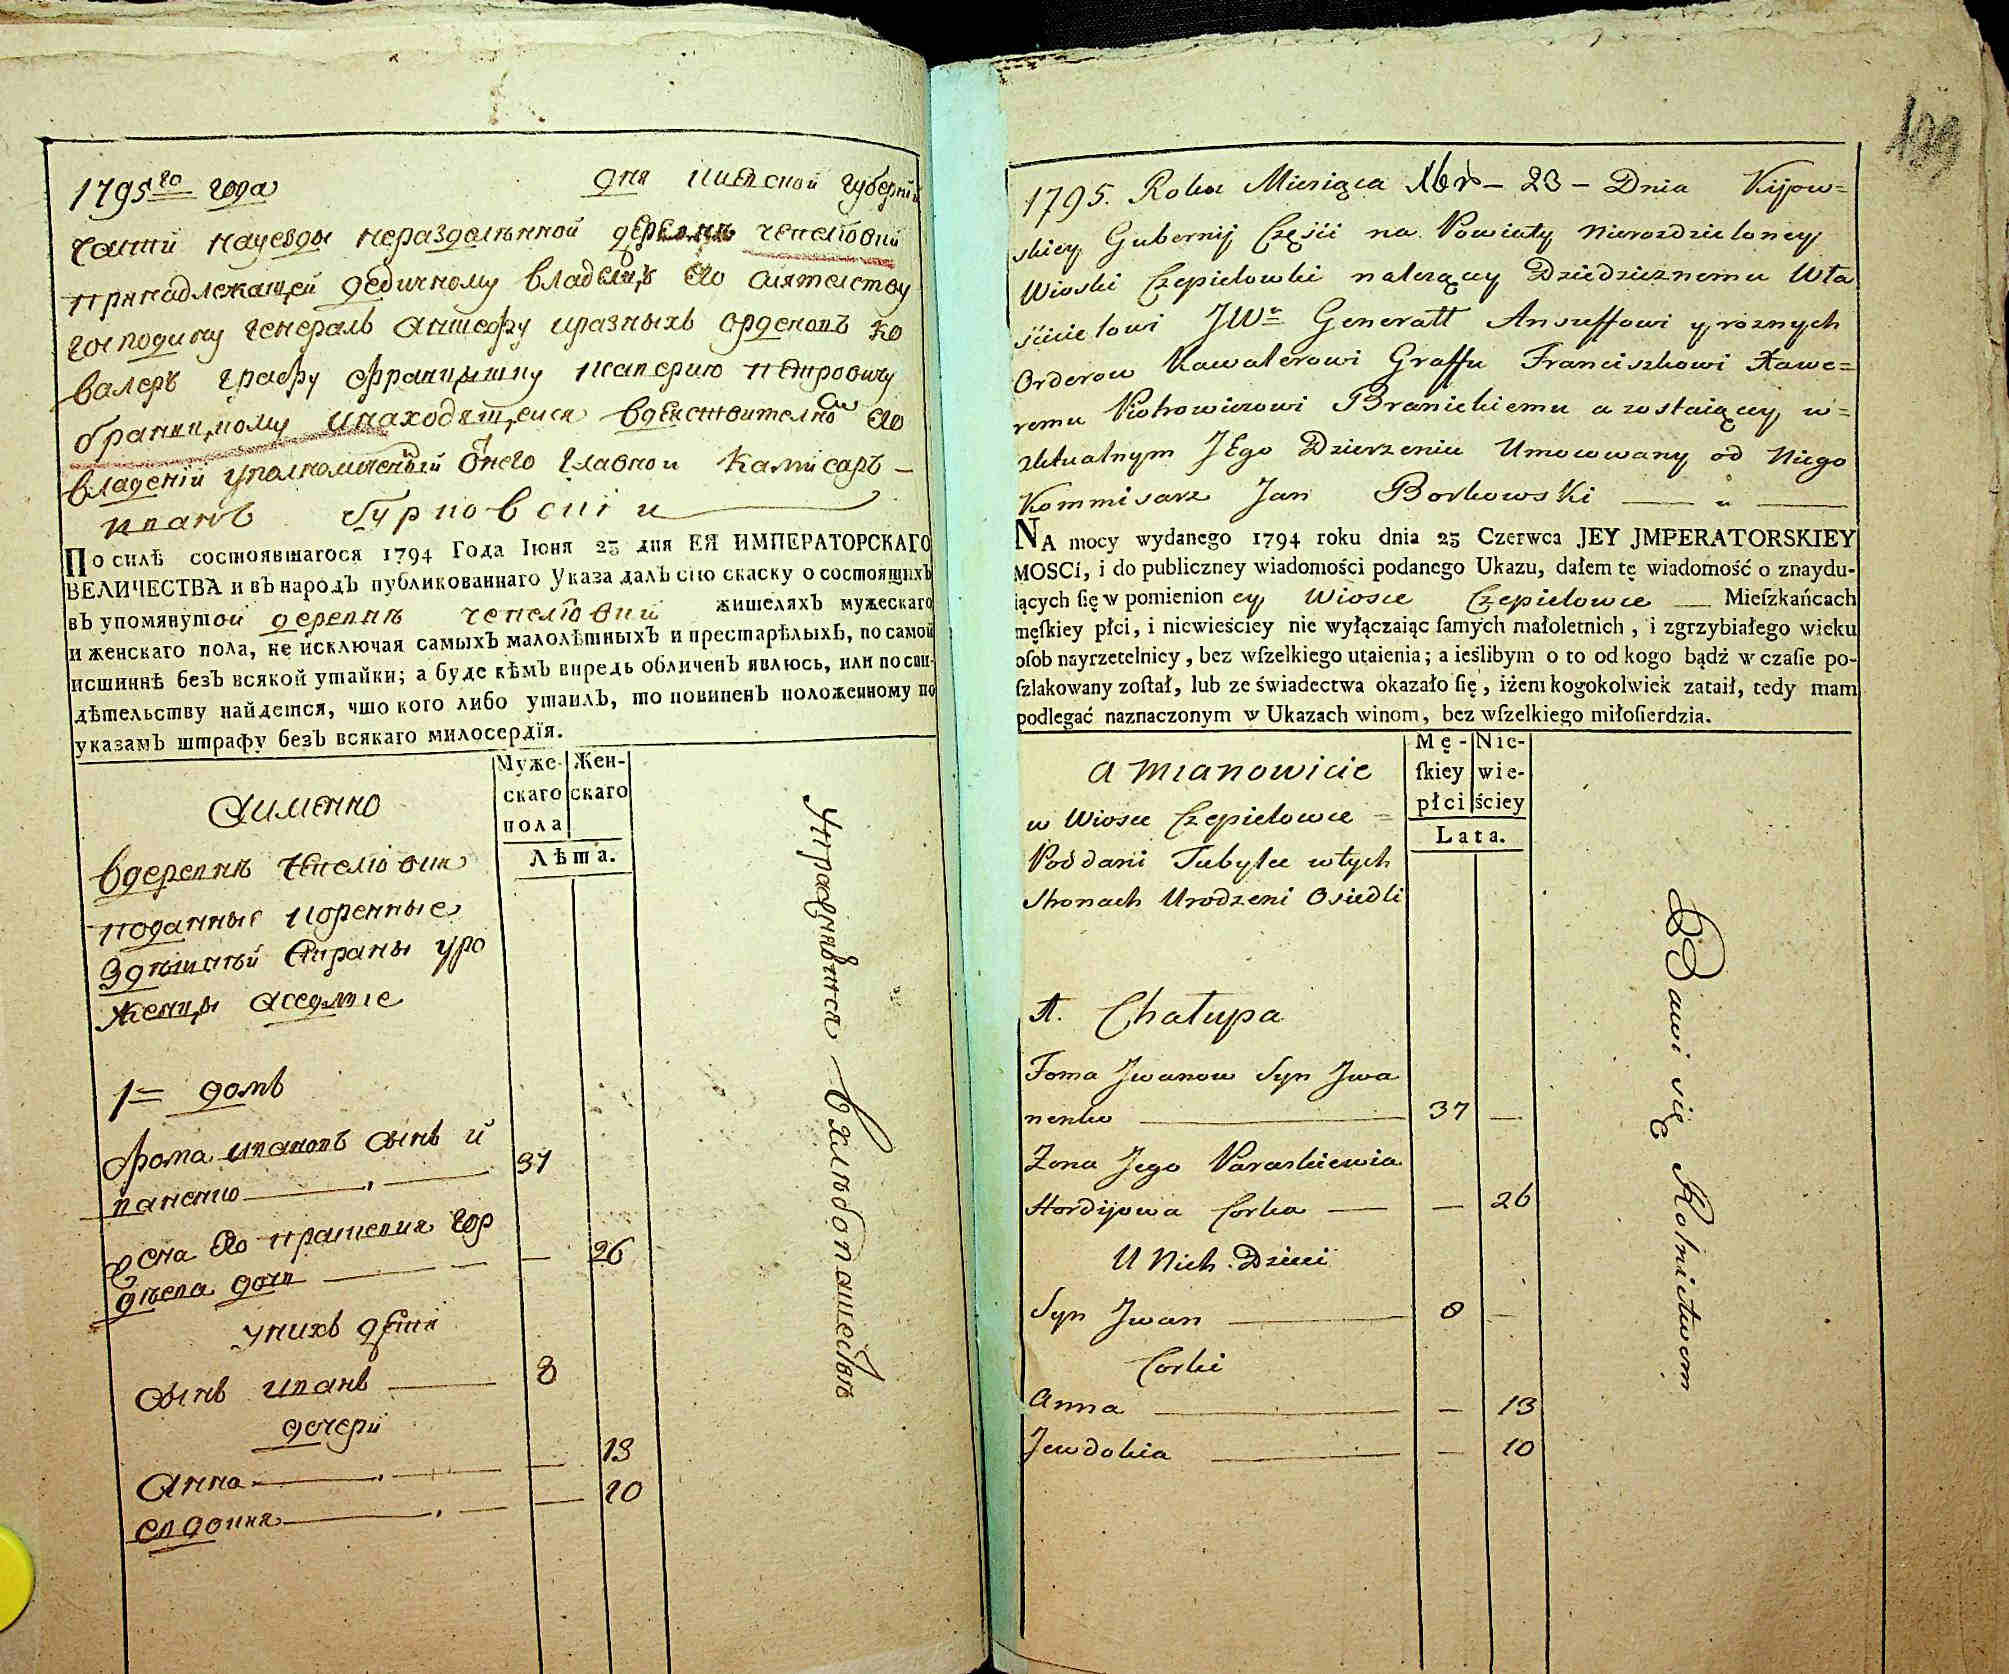 1795го года дня киевской губерний
части науезды нераздаленной деревне чепелювки
принадлежащей дедичному владелцу его сиятелству
господину генералъ аншефу иразныхъ орденовъ ка
валеръ графу францышку ксаверию петровичу
браницкому инаходящеися вдействителномъ его
владений уполномоченный онего главнои камисаръ —
иванъ бурковскіи
По силѣ состоявшагося 1794 Года Іюня 23 дня ЕЯ ИМПЕРАТОРСКАГО
ВЕЛИЧЕСТВА и въ народъ публикованнаго Указа далъ сію скаску о состоящихъ
въ упомянутой деревне чепелювки жителяхъ мужескаго
и женскаго пола, не исключая самыхъ малолѣтныхъ и престарѣлыхъ, по самой
истиннѣ безъ всякой утайки; а буде кѣмъ впредь обличенъ явлюсь, или по сви-
дѣтельству найдется, что кого либо утаилъ, то повиненъ положенному по
указамъ штрафу безъ всякаго милосердія.
Муже- Жен-
скаго скаго
пола
Лѣта.
Аименно
вдеревне чепелювки
поданные коренные
здешней страны уро
женцы аседлые
1= домъ
Фома ивановъ сынъ и
ваненко — 37
жена его прасковия гор
деева дочь — — 26
унихъ дети
сынъ иванъ — 8
дочери
Анна — — 13
евдокия — — 10
Управляются вхлебопашестве
199
1795. Roku Miesiąca Xbr – 23 – Dnia Kijow=
skiey Gubernij Części na Powiaty nierozdzieloney
Wioski Czepielowki należący Dziedzicznemu Wła
ścicielowi JWu Generałł Ansuffowi y roznych
Orderow Kawalerowi Graffu Franciszkowi Xawe=
remu Piotrowiczowi Branickiemu a zostaiącey w=
aktualnym JEgo Dzierzeniu Umocowany od Niego
Kommisarz Jan Borkowski — " —
NA mocy wydanego 1794 roku dnia 23 Czerwca JEY JMPERATORSKIEY
MOSCi, i do publiczney wiadomości podanego Ukazu, dałem tę wiadomość o znaydu-
iących ſię w pomienion ey Wiosce Czepielowce — Mieſzkańcach
męſkiey płci, i niewieściey nie wyłączaiąc ſamych małoletnich, i zgrzybiałego wieku
oſob nayrzetelnicy, bez wſzelkiego utaienia; a ieślibym o to od kogo bądź w czaſie po-
ſzlakowany zoſtał, lub ze świadectwa okazało ſię, iżem kogokolwiek zataił, tedy mam
podlegać naznaczonym w Ukazach winom, bez wſzelkiego miłoſierdzia.
Mę- Nie-
ſkiey wie-
płci ściey
Lata.
a Mianowicie
w Wiosce Czepielowce =
Poddani Tubylce w tych
Stronach Urodzeni Osiedli
1. Chałupa
Foma Jwanow Syn Jwa
nenko — 37 —
Zona Jego Paraskiewia
Hordijowa Corka — — 26
U Nich Dzieci
Syn Jwan — 8 —
Corki
Anna — — 13
Jewdokia — — 10
Bawi się Rolnictwem